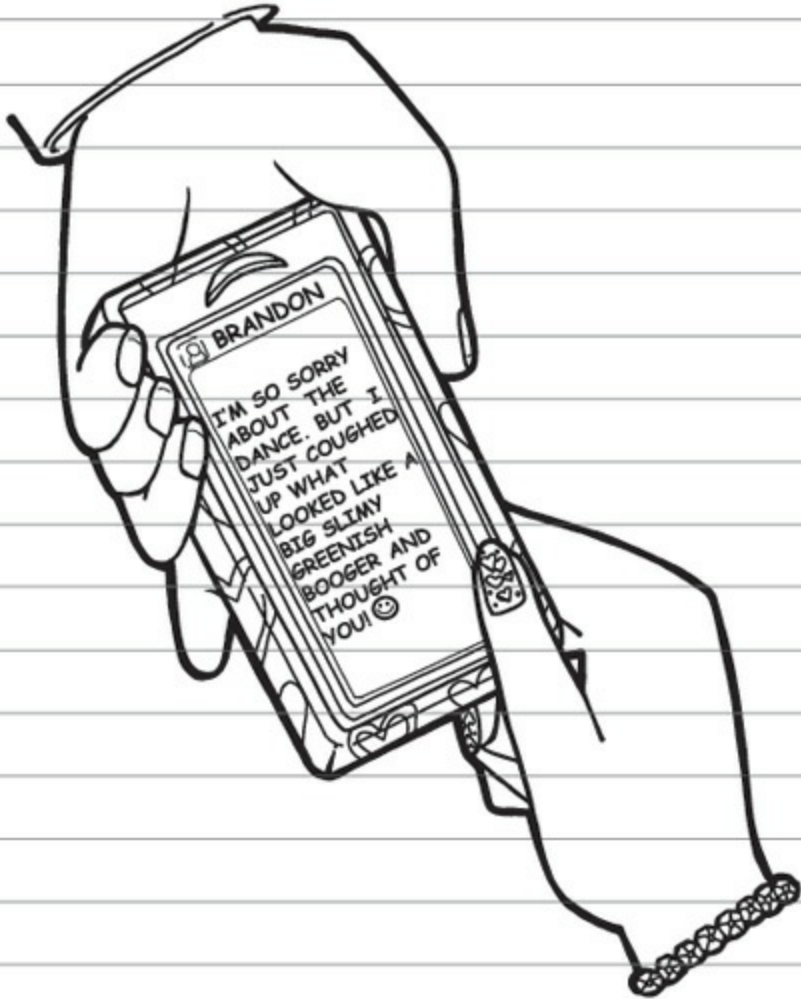 BRANDON
I'M SO SORRY
ABOUT THE
DANCE. BUT I
JUST COUGHED
UP WHAT
LOOKED LIKE A
BIG SLIMY
GREENISH
BOOGER AND
THOUGHT OF
YOU!☺